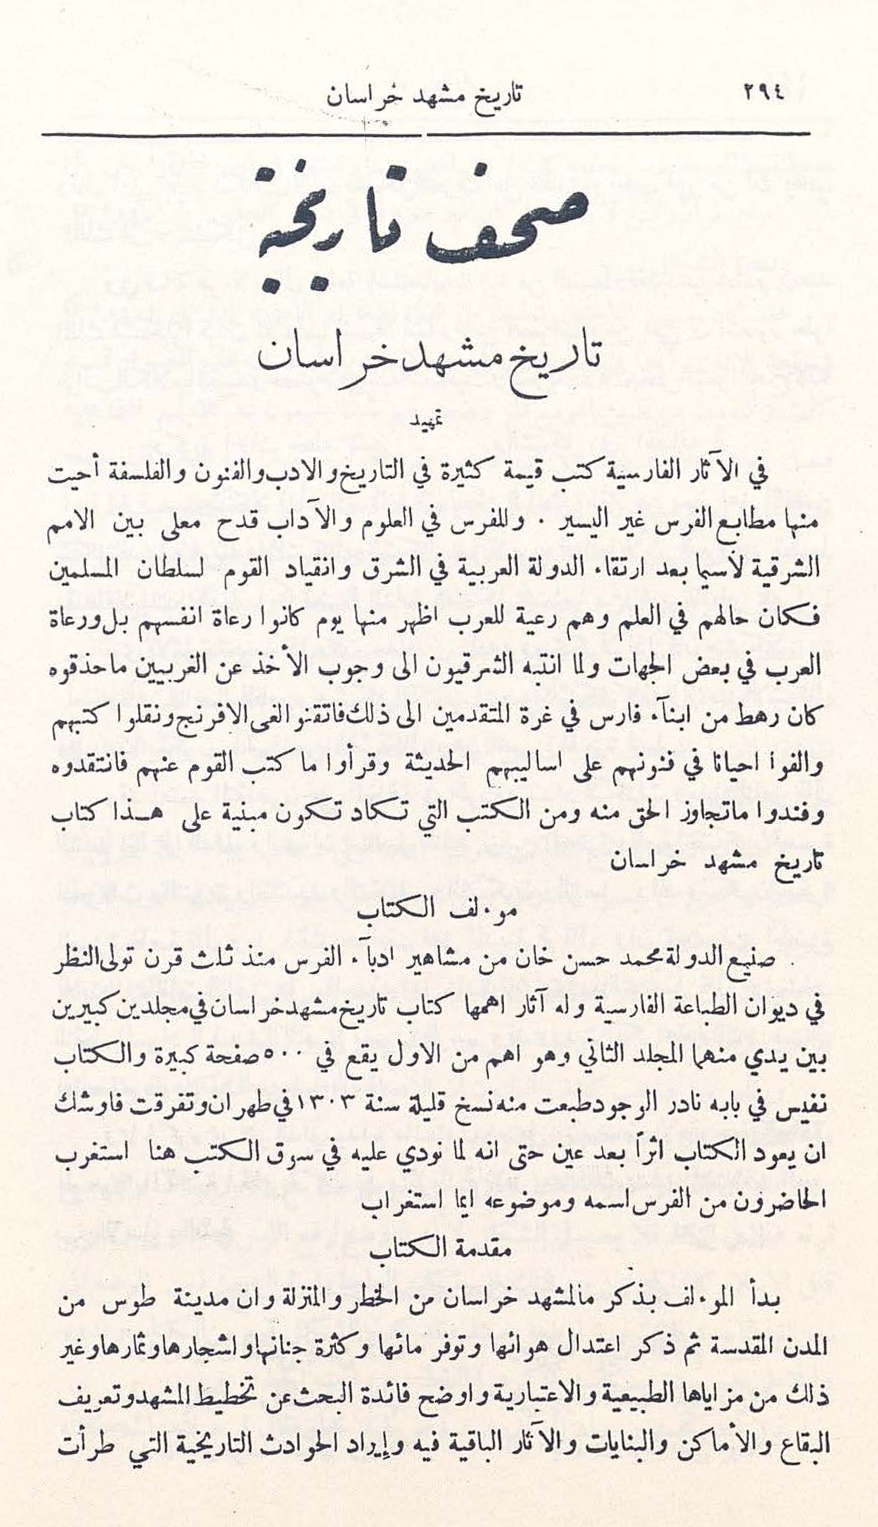 ٢٩٤
تاريخ مشهد خراسان
صحف تاريخية
تاريخ مشهد خراسان
تمهيد
في الآثار الفارسية كتب قيمة كثيرة في التاريخ والادب والفنون والفلسفة أحيت
منها مطابع الفرس غير اليسير . وللفرس في العلوم والآداب قدح معلى بين الامم
الشرقية لاسيما بعد ارتقاء الدولة العربية في الشرق وانقياد القوم لسلطان المسلمين
فكان حالهم في العلم وهم رعية للعرب اظهر منها يوم كانوا رعاة انفسهم بل ورعاة
العرب في بعض الجهات ولما انتبه الشرقيون الى وجوب الأخذ عن الغربيين ما حذقوه
كان رهط من ابنآء فارس في غرة المتقدمين الى ذلك فاتقنوا لغى الافرنج ونقلوا كتبهم
والفوا احيانا في فنونهم على اساليبهم الحديثة وقرأوا ما كتب القوم عنهم فانتقدوه
وفندوا ماتجاوز الحق منه ومن الكتب التي تكاد تكون مبنية على هذا كتاب
تاريخ مشهد خراسان
موءلف الكتاب
صنيع الدولة محمد حسن خان من مشاهير ادبآء الفرس منذ ثلث قرن تولى النظر
في ديوان الطباعة الفارسية وله آثار اهمها كتاب تاريخ مشهد خراسان في مجلدين كبيرين
بين يدي منهما المجلد الثاني وهو اهم من الاول يقع في ٥٠٠ صفحة كبيرة والكتاب
نفيس في بابه نادر الوجود طبعت منه نسخ قليلة سنة ١٣٠٣ في طهران وتفرقت فاوشك
ان يعود الكتاب اثراً بعد عين حتى انه لما نودي عليه في سوق الكتب هنا استغرب
الحاضرون من الفرس اسمه وموضوعه ايما استغراب
مقدمة الكتاب
بدأ الموءلف بذكر مالمشهد خراسان من الخطر والمنزلة وان مدينة طوس من
المدن المقدسة ثم ذكر اعتدال هوائها وتوفر مائها وكثرة جنانها واشجارها وثمارها وغير
ذلك من مزاياها الطبيعية والاعتبارية واوضح فائدة البحث عن تخطيط المشهد وتعريف
البقاع والأماكن والبنايات والآثار الباقية فيه وإيراد الحوادث التاريخية التي طرأت